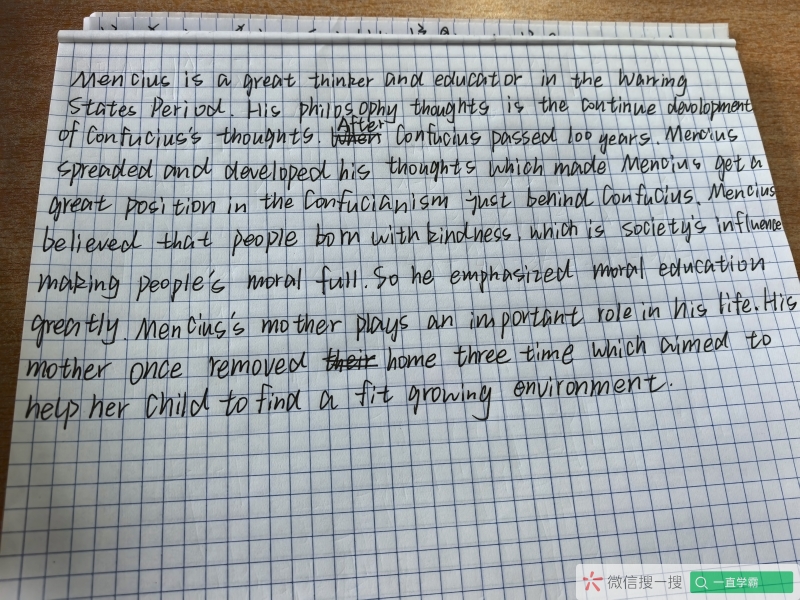 Mencius is a great thinker and educator in the Warring
States Period. His philosophy thoughts is the continue devolopment
of Confucius's thoughts. After Confucius passed 100 years. Mencius
spreaded and developed his thoughts which made Mencius get a
great position in the Confucianism just behind Confucius. Mencius
believed that people born with kindness, which is society's influence
making people's moral full. So he emphasized moral education
greatly. Mencius's mother plays an important role in his life. His
mother once removed their home three time which aimed to
help her child to find a fit growing environment.
微信搜一搜
一直学霸